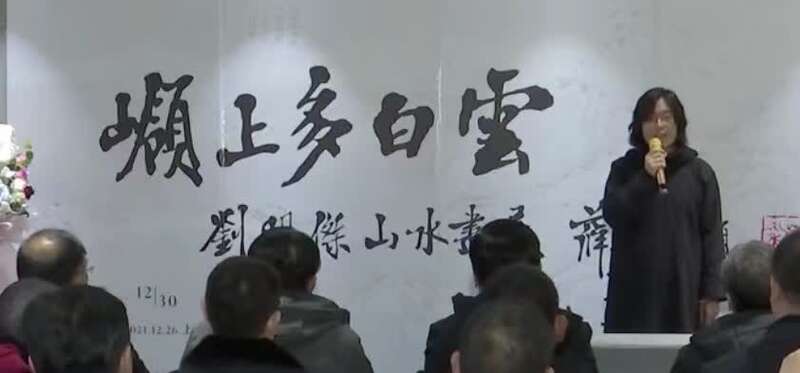 嶺上多白雲
劉明傑山水畫展 薛
12|30
2021.12.26 上